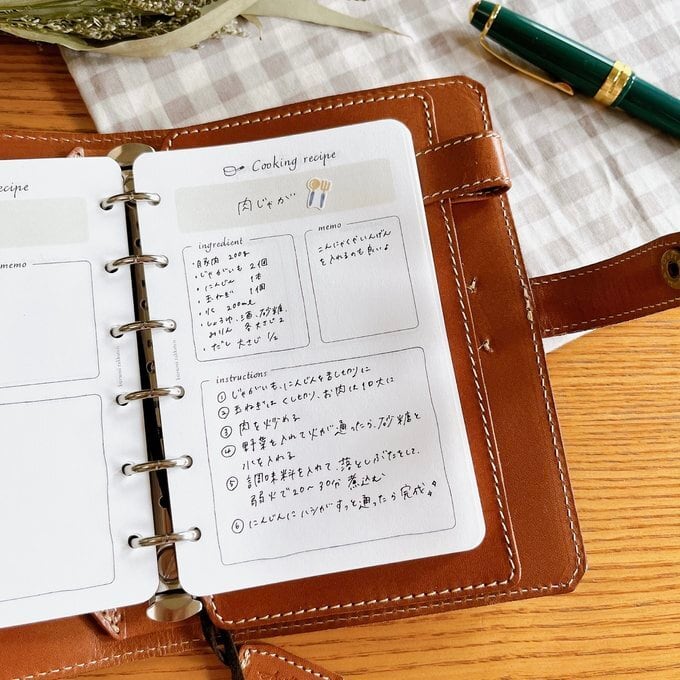 ecipe
memo
Cooking recipe
肉じゃが
ingredient
・豚肉 200g
・じゃがいも 2個
・にんじん 1本
・玉ねぎ 1個
・水 200ml
・しょうゆ、酒、砂糖、
みりん 各大さじ2
・だし 大さじ 1/2
memo
こんにゃくやいんげん
を入れるのも良いよ
instructions
① じゃがいも、にんじんを乱切りに
② 玉ねぎは くし切り、お肉は1口大に
③ 肉を炒める
④ 野菜を入れて火が通ったら、砂糖と
水を入れる
⑤ 調味料を入れて、落としぶたをして、
弱火で20〜30分 煮込む
⑥ にんじんにハシがすっと通ったら完成